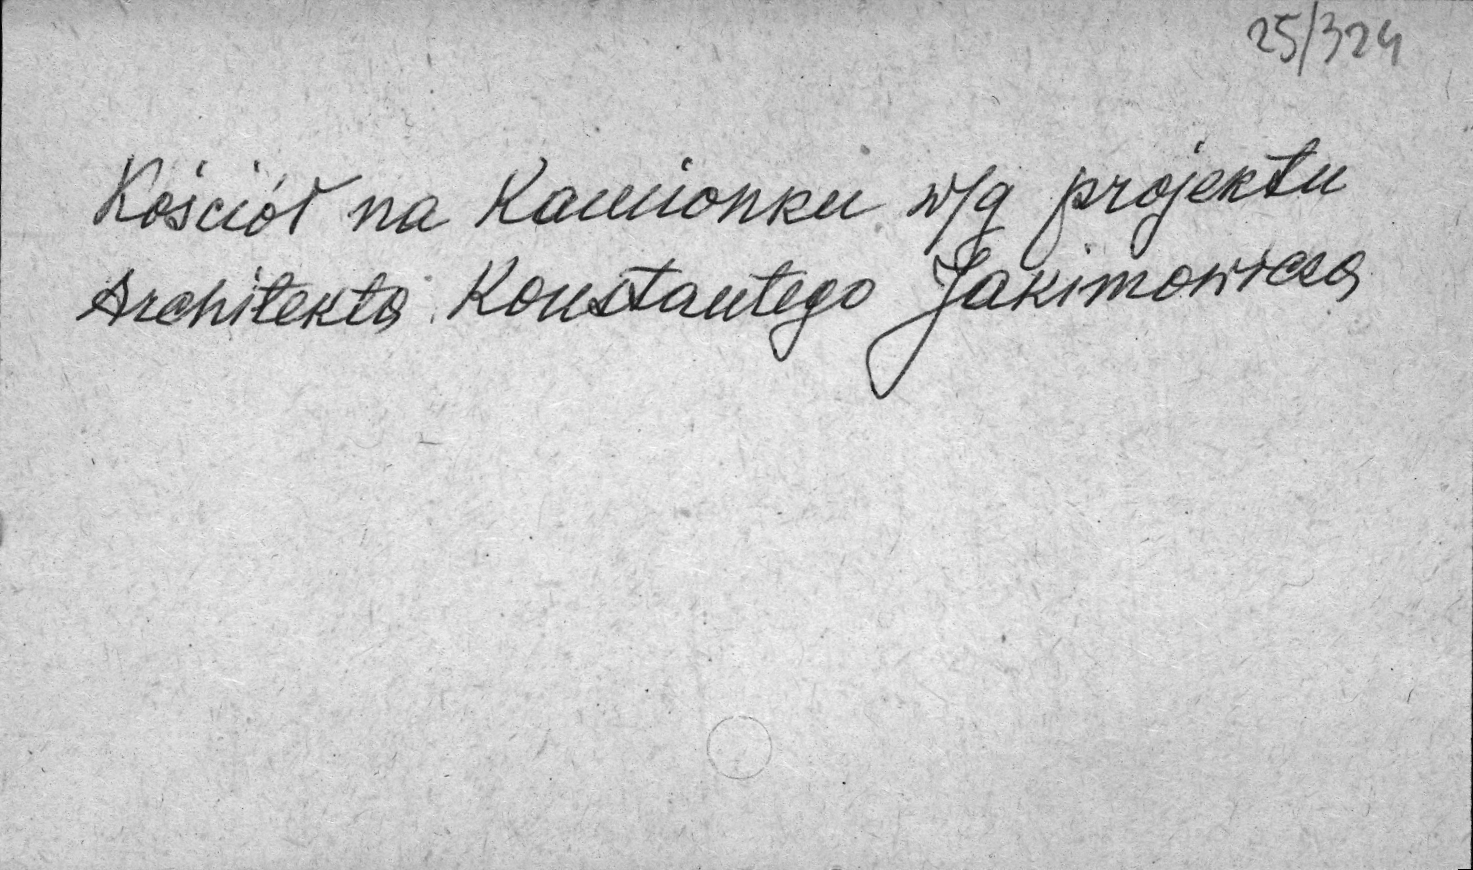 25/324
Kościół na Kamionku w/g projektu
Architekta Konstantego Jakimowicza